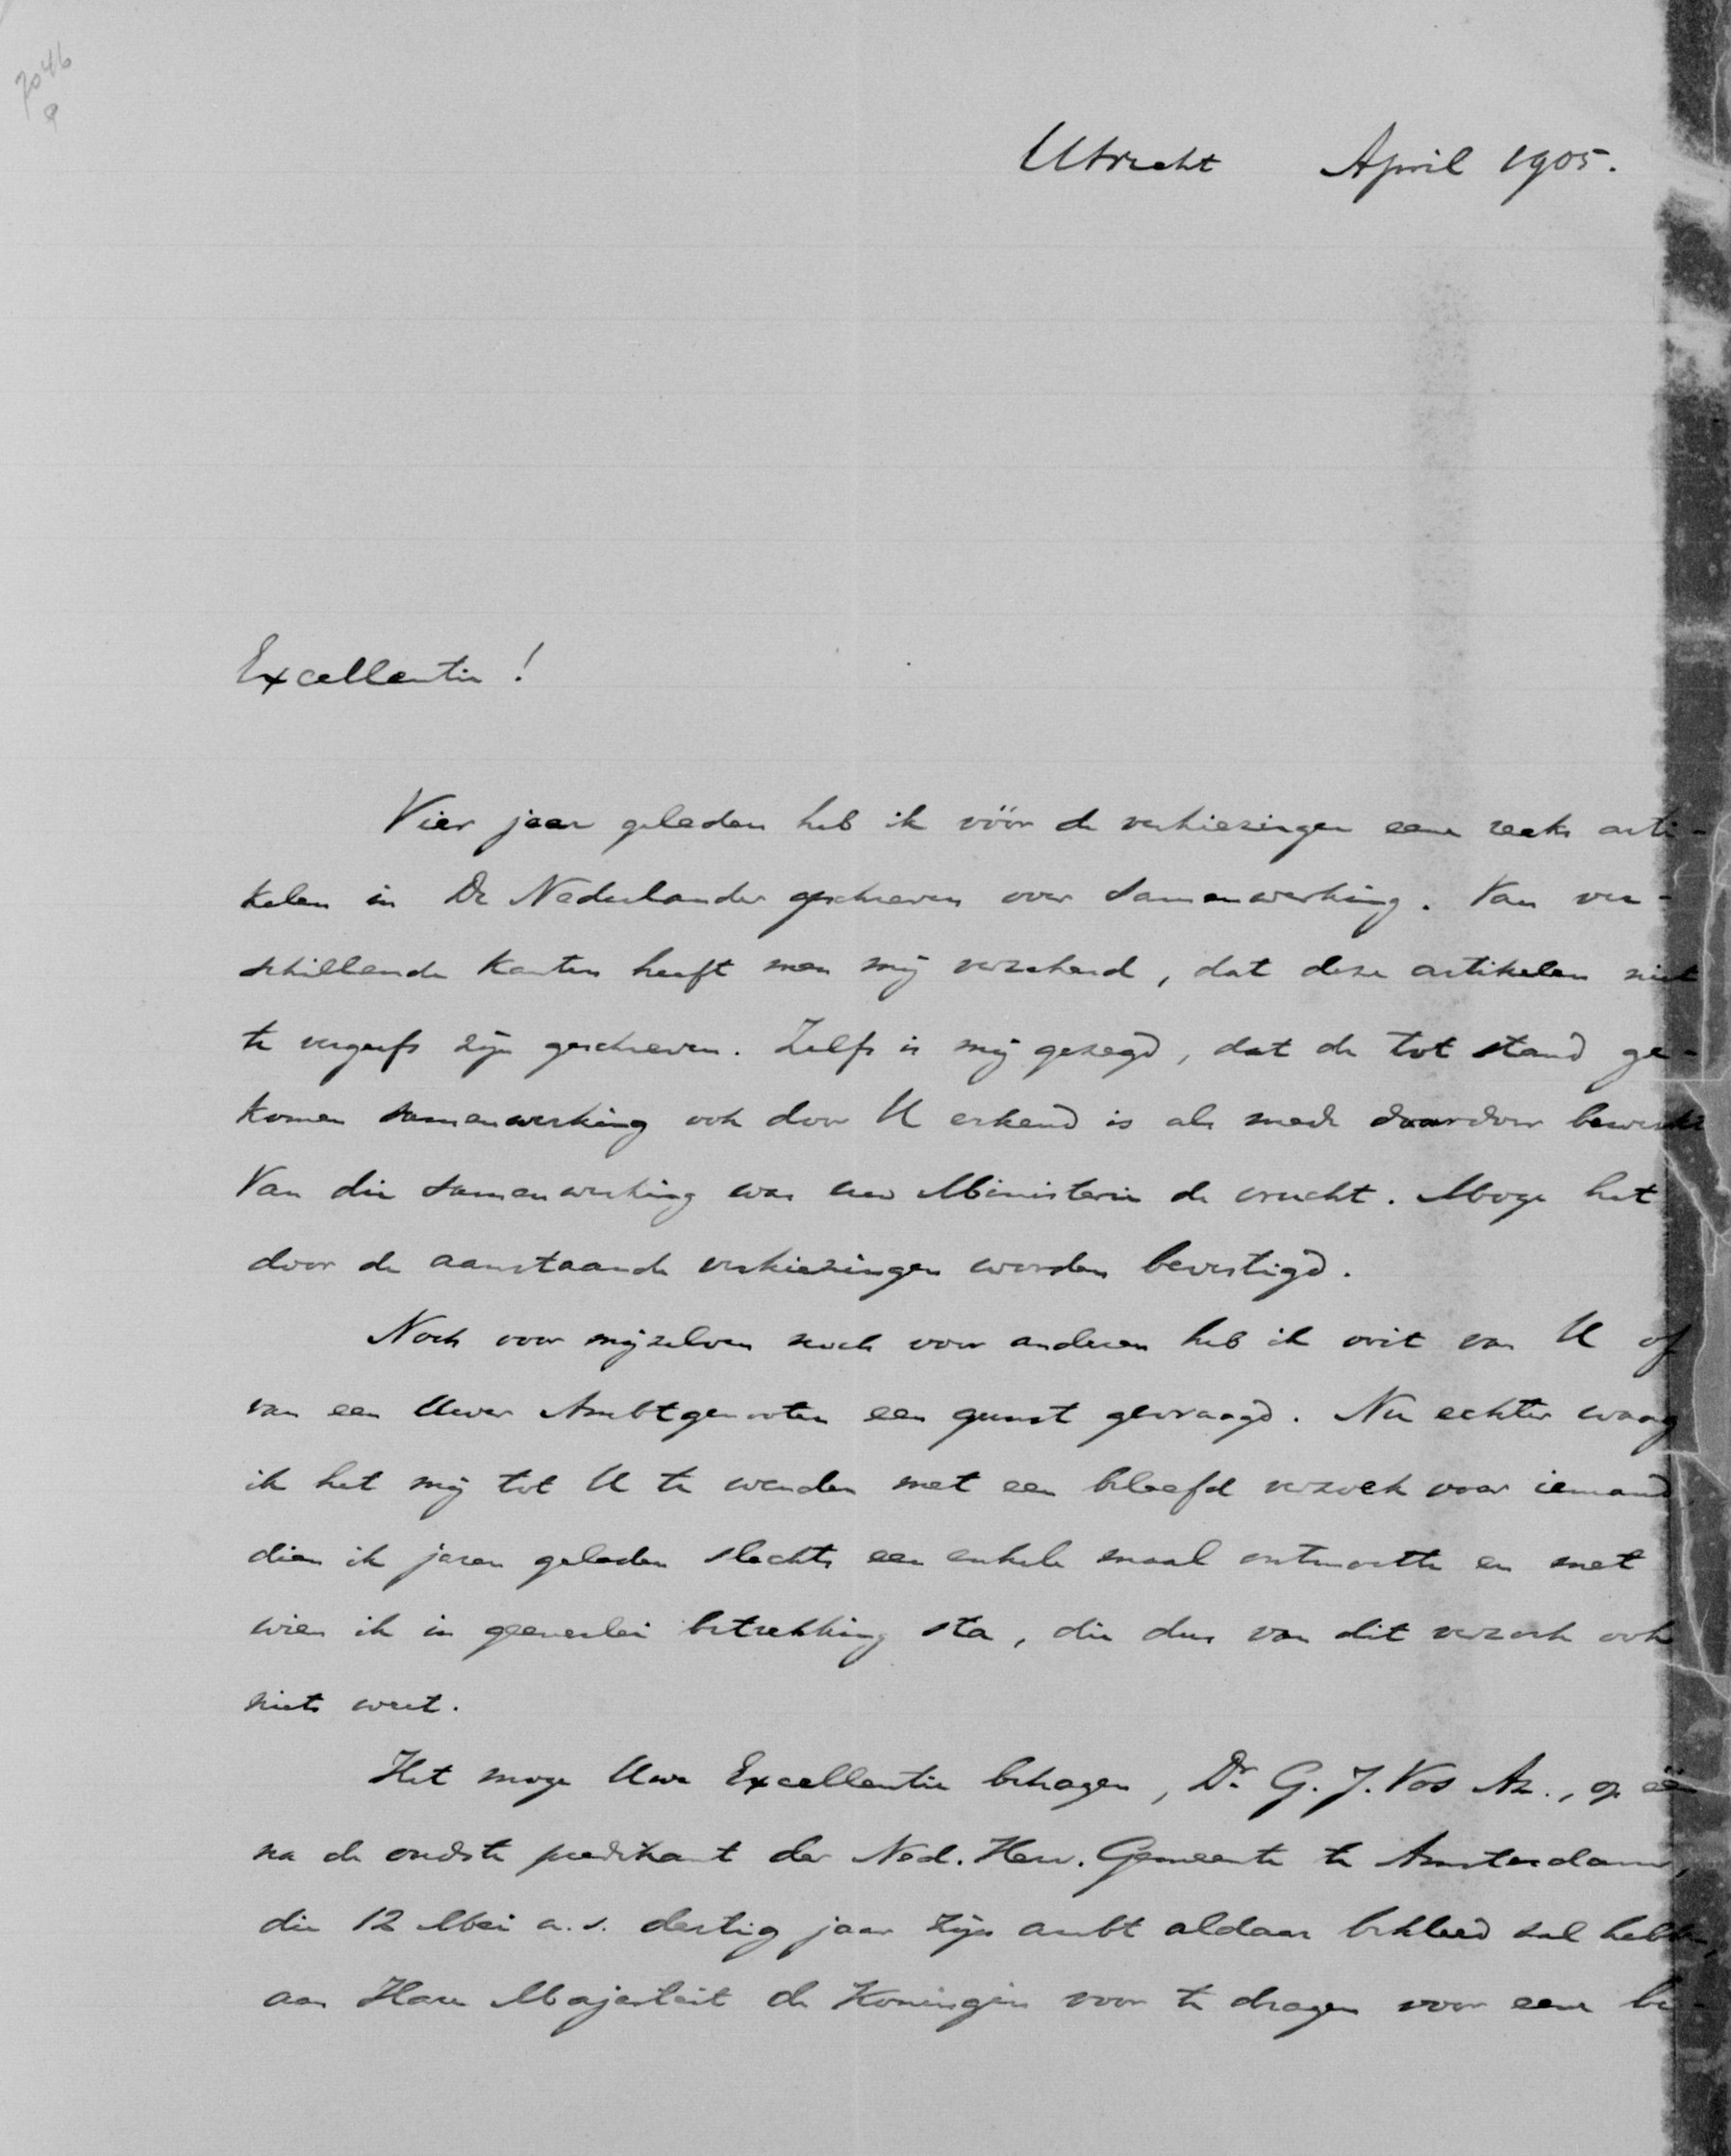 7046
Utrecht April 1905.
Excellentie!
Vier jaar geleden heb ik vóór de verkiezingen eene reeks arti-
kelen in De Nederlander geschreven over samenwerking. Van ver-
schillende kanten heeft men mij verzekerd, dat deze artikelen niet
te vergeefs zijn geschreven. Zelfs is mij gezegd, dat de tot stand ge-
komen samenwerking ook door U erkend is als mede daardoor bewerkt
Van die samenwerking was uw Ministerie de vrucht. Moge het
door de aanstaande verkiezingen worden bevestigd.
Noch voor mijzelven noch voor anderen heb ik ooit van U of
van een Uwer Ambtgenooten een gunst gevraagd. Nu echter waag
ik het mij tot U te wenden met een beleefd verzoek voor iemand
dien ik jaren geleden slechts een enkele maal ontmoette en met
wien ik in geenerlei betrekking sta, die dus van dit verzoek ook
niets weet.
Het moge Uwe Excellentie behagen, Dr. G. J. Vos Az., op één
na de oudste predikant der Ned. Herv. Gemeente te Amsterdam,
die 12 Mei a.s. dertig jaar zijn ambt aldaar bekleed zal hebben,
aan Hare Majesteit de Koningin voor te dragen voor eene be-